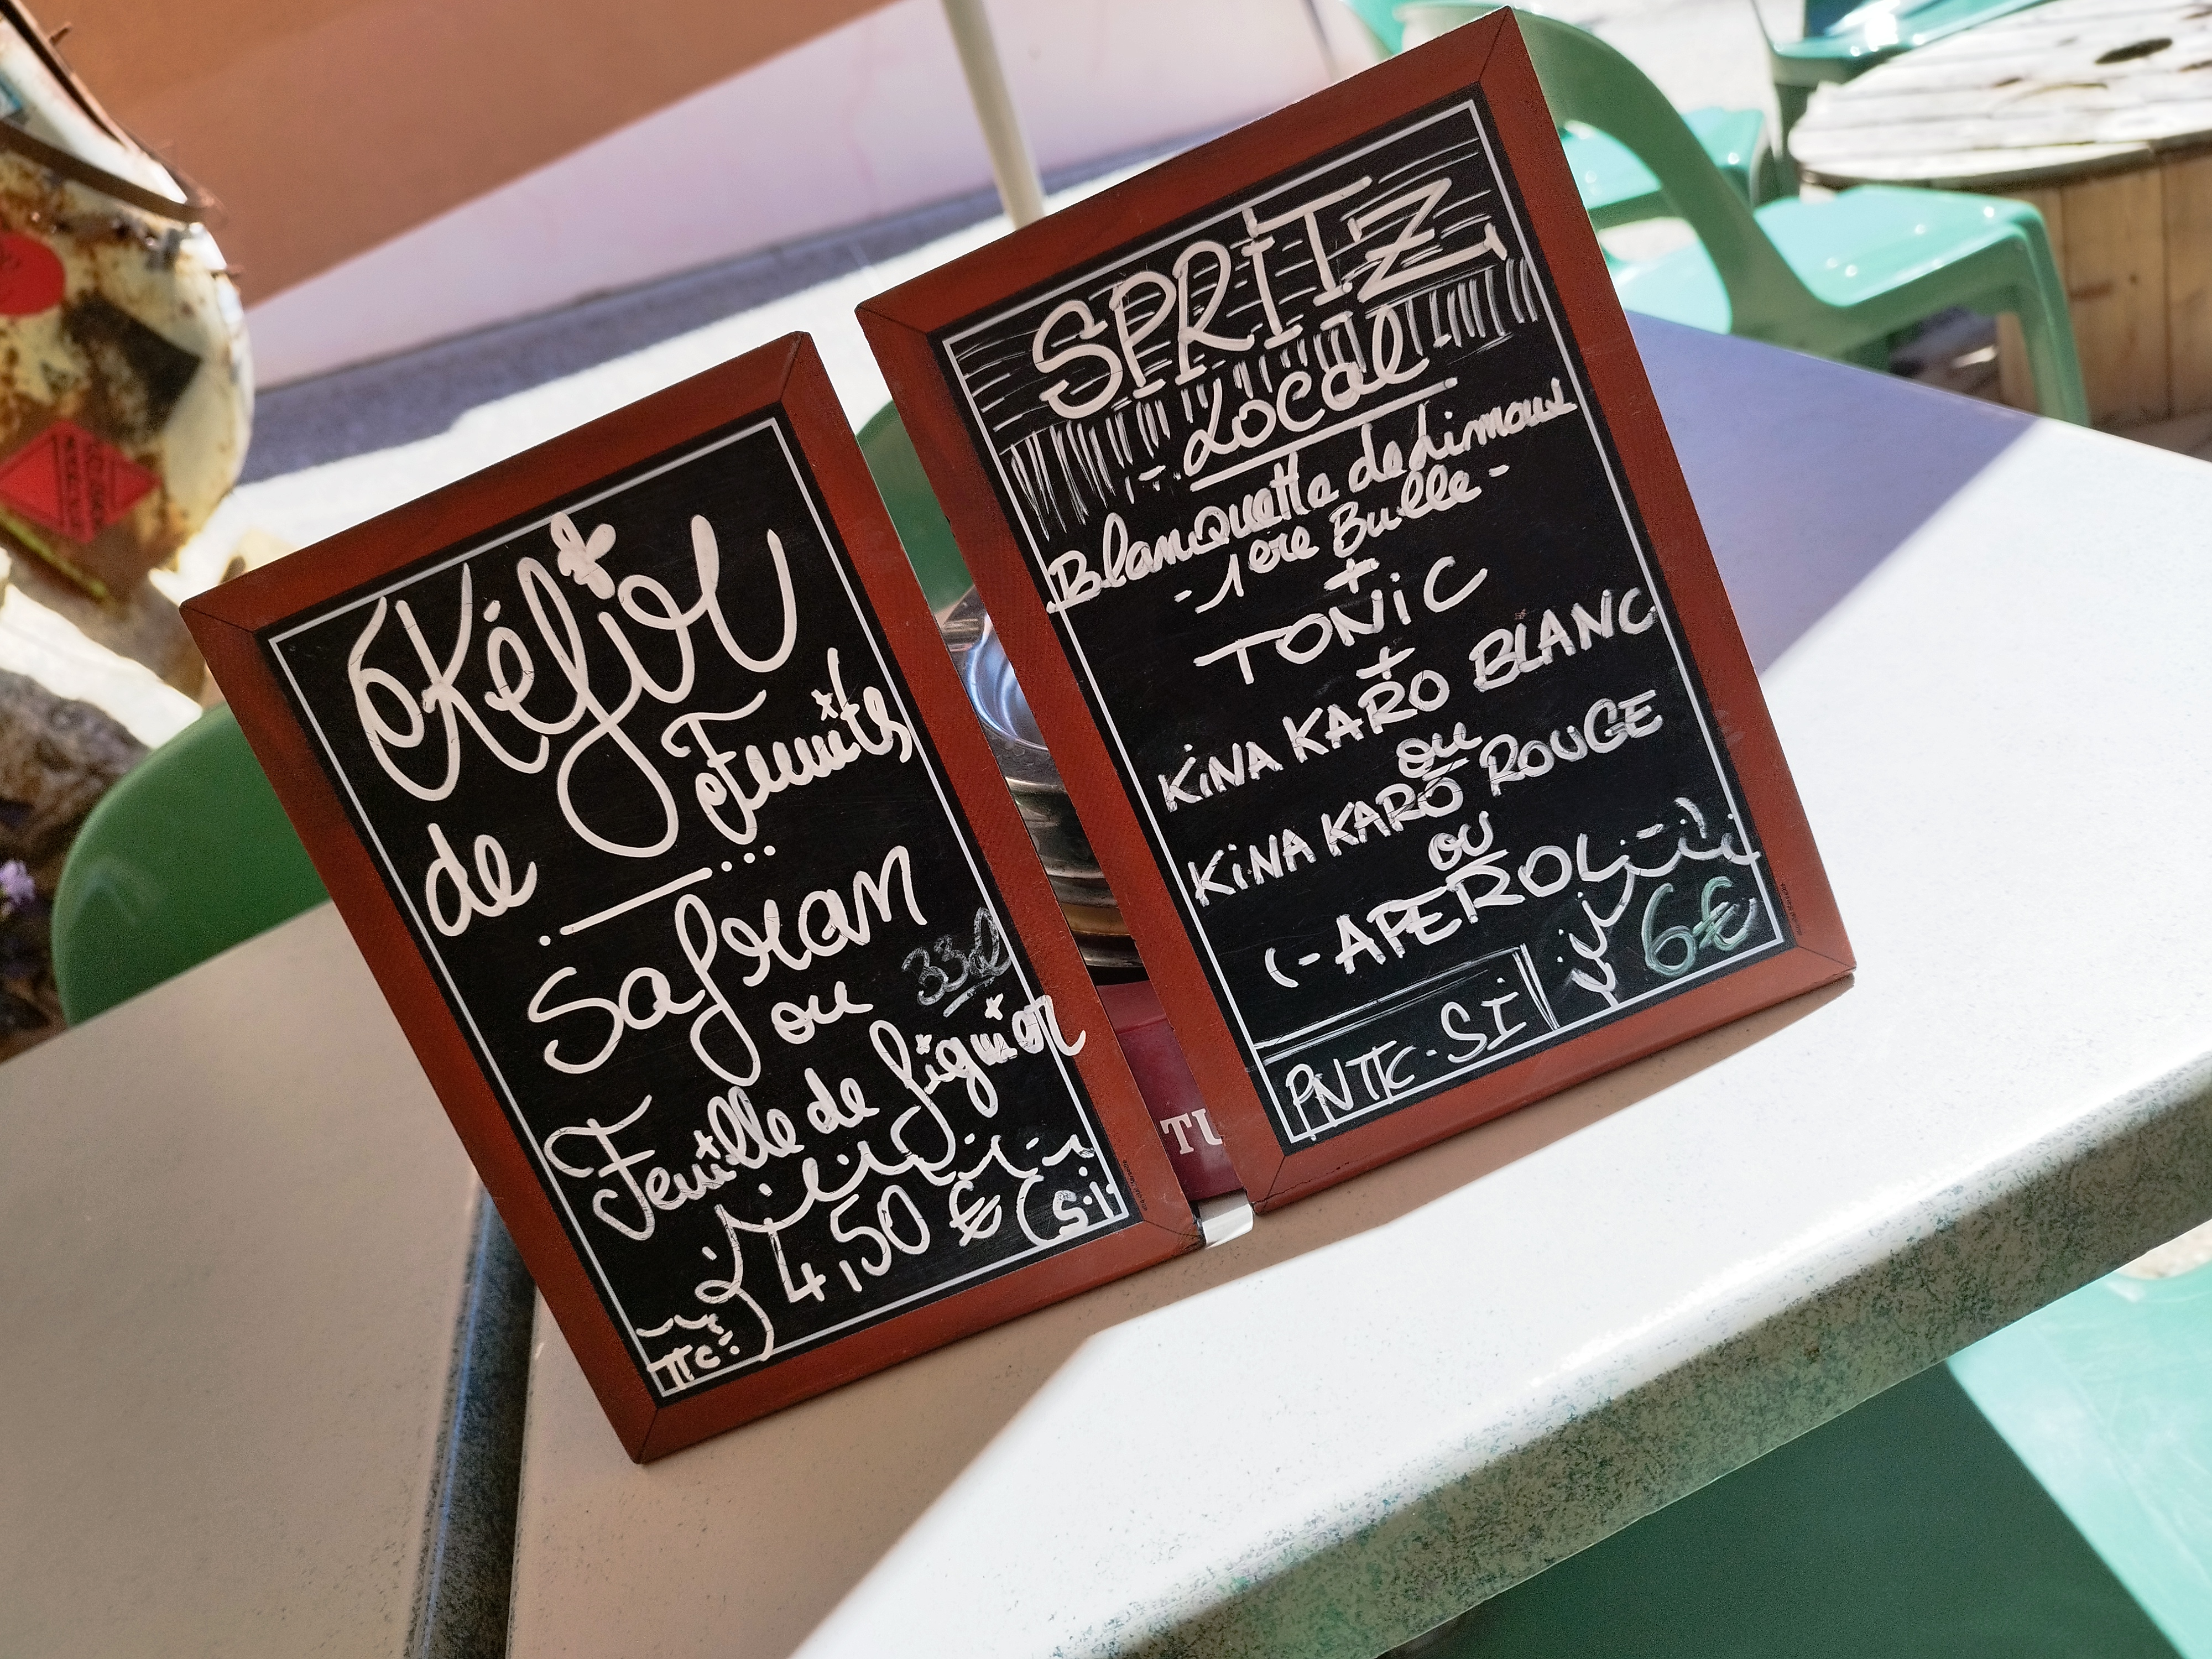 Kéfir
de Fruits
Safran
ou 33cl
Feuille de figuier
4,50 € (Si
TTC
SPRITZ
- Local
Blanquette de Limoux
- 1ere Bulle -
+
TONiC
+
KiNA KARO BLANC
ou
KiNA KARO ROUGE
ou
(- APEROL -)
6€
PNTTC - SI
TU